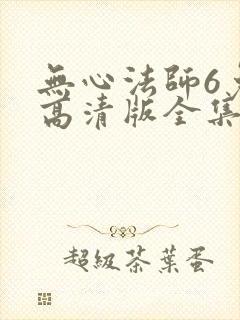 無心法師6
高清版全集
超級茶葉蛋